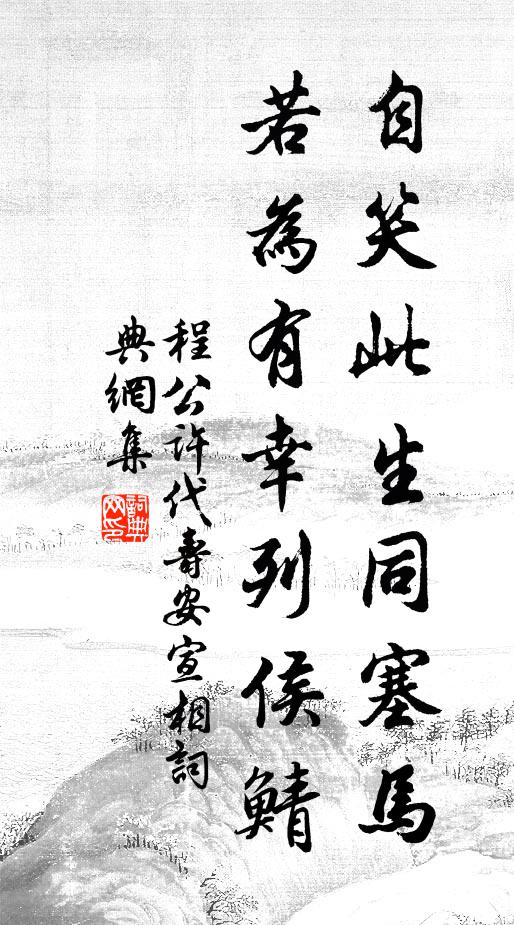 自笑此生同塞馬
若為有幸列侯鯖
程公許代壽安宣相詞
典網集
詞典網印